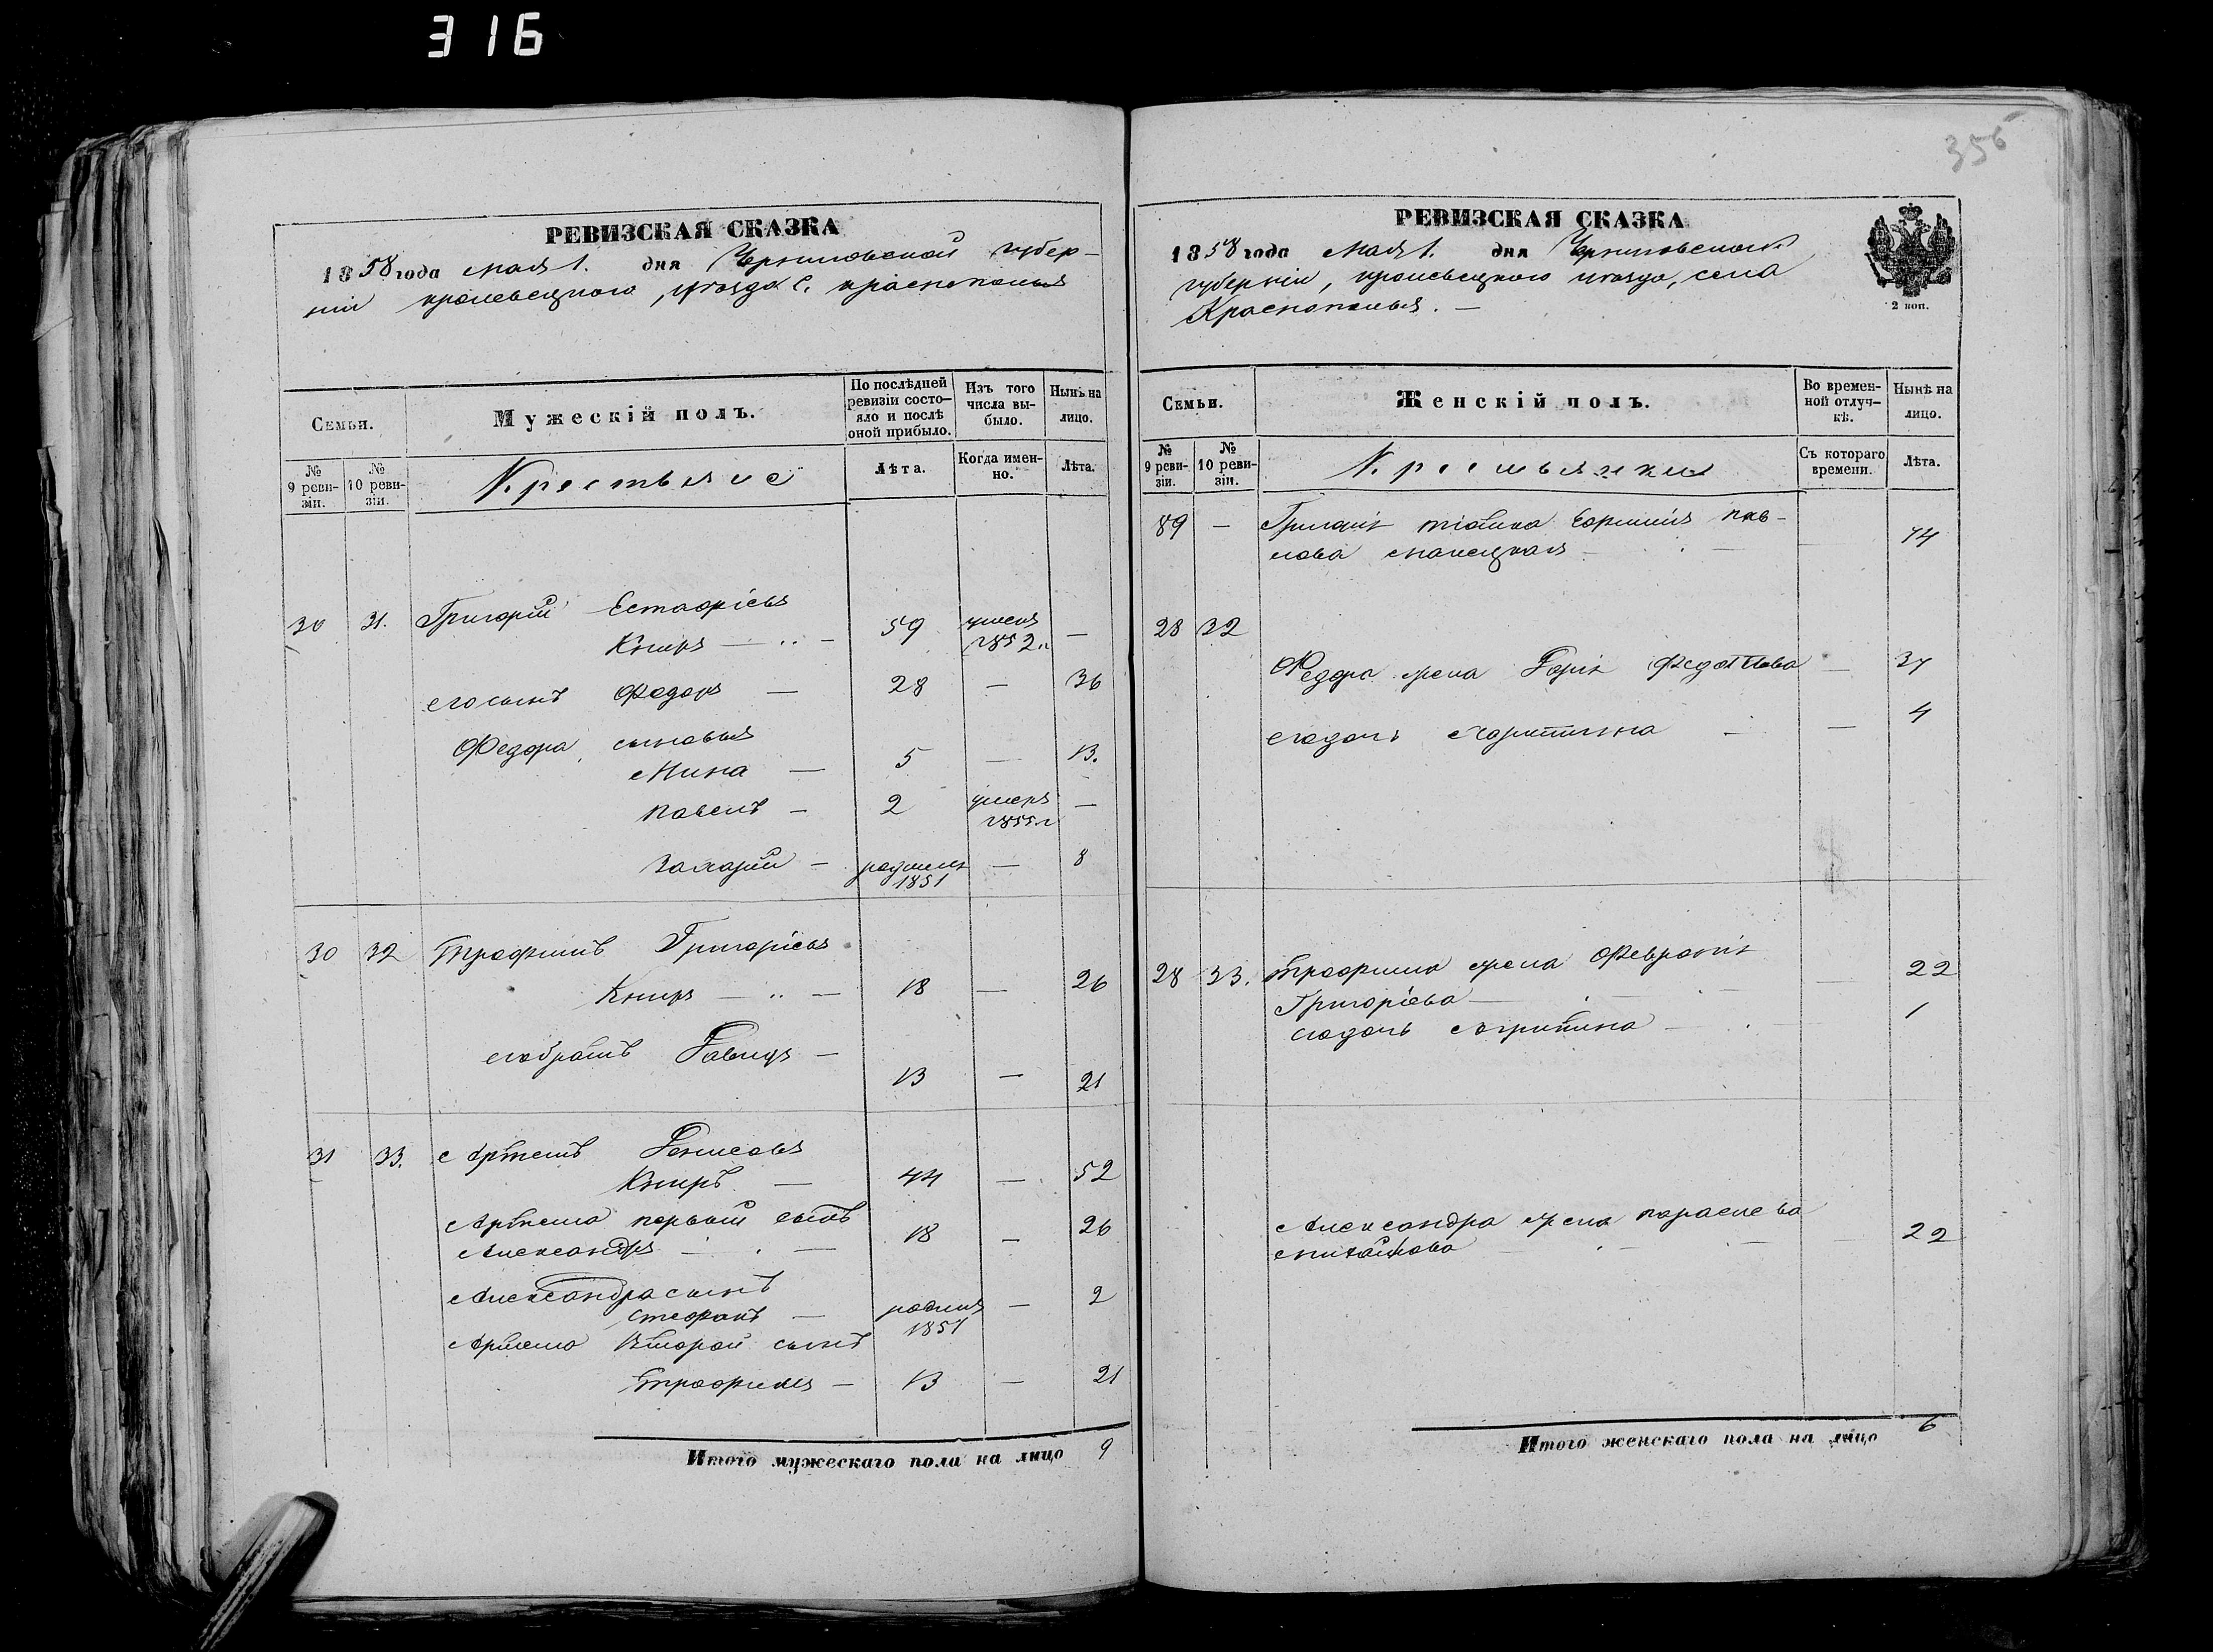 316
356
РЕВИЗСКАЯ СКАЗКА
1858 года мая 1. дня Черниговской губер-
ніи кролевецкого, уѣзда С. краснополья
Семьи.
Мужескій полъ.
По послѣдней ревизіи состо-
яло и послѣ оной прибыло.
Изъ того числа вы-
было.
Нынѣ на лицо.
№ 9 реви-
зіи.
№ 10 реви-
зіи.
Крестьяне
Лѣта.
Когда имен-
но.
Лѣта.
30 31. Григорій Естафіевъ
Кныръ — 59 умеръ 1852 г —
его сынъ Федоръ — 28 — 36
Федора сыновья
Мина — 5 — 13.
павелъ — 2 умеръ 1855 г —
Захарій — родился 1851 — 8
30 32 Трофимъ Григоріевъ
Кныръ — 18 — 26
его братъ Давидъ —
13 — 21
31 33. Артемъ Денисовъ
Кныръ — 44 — 52
Артема первый сынъ
Александръ — 18 — 26
Александра сынъ
Стефанъ — родился 1857 — 2
Артема Второй сынъ
Трофимъ — 13 — 21
Итого мужескаго пола на лицо 9
РЕВИЗСКАЯ СКАЗКА
1858 года мая 1. дня Черниговской
губерніи, кролевецкого уѣзда, села
Краснополья. —
2 коп.
Семьи.
Женскій полъ.
Во времен-
ной отлуч-
кѣ.
Нынѣ на лицо.
№ 9 реви-
зіи.
№ 10 реви-
зіи.
Крестьянки
Съ котораго времени.
Лѣта.
89 — пав-
лова — 44
28 32
Федора жена Дарія Федотова — 37
его дочь Харитина — 4
28 33. Трофима жена Февронія 22
Григоріева —
его дочь Агрипина — 1
Александра жена параскева
22
Итого женскаго пола на лицо 6